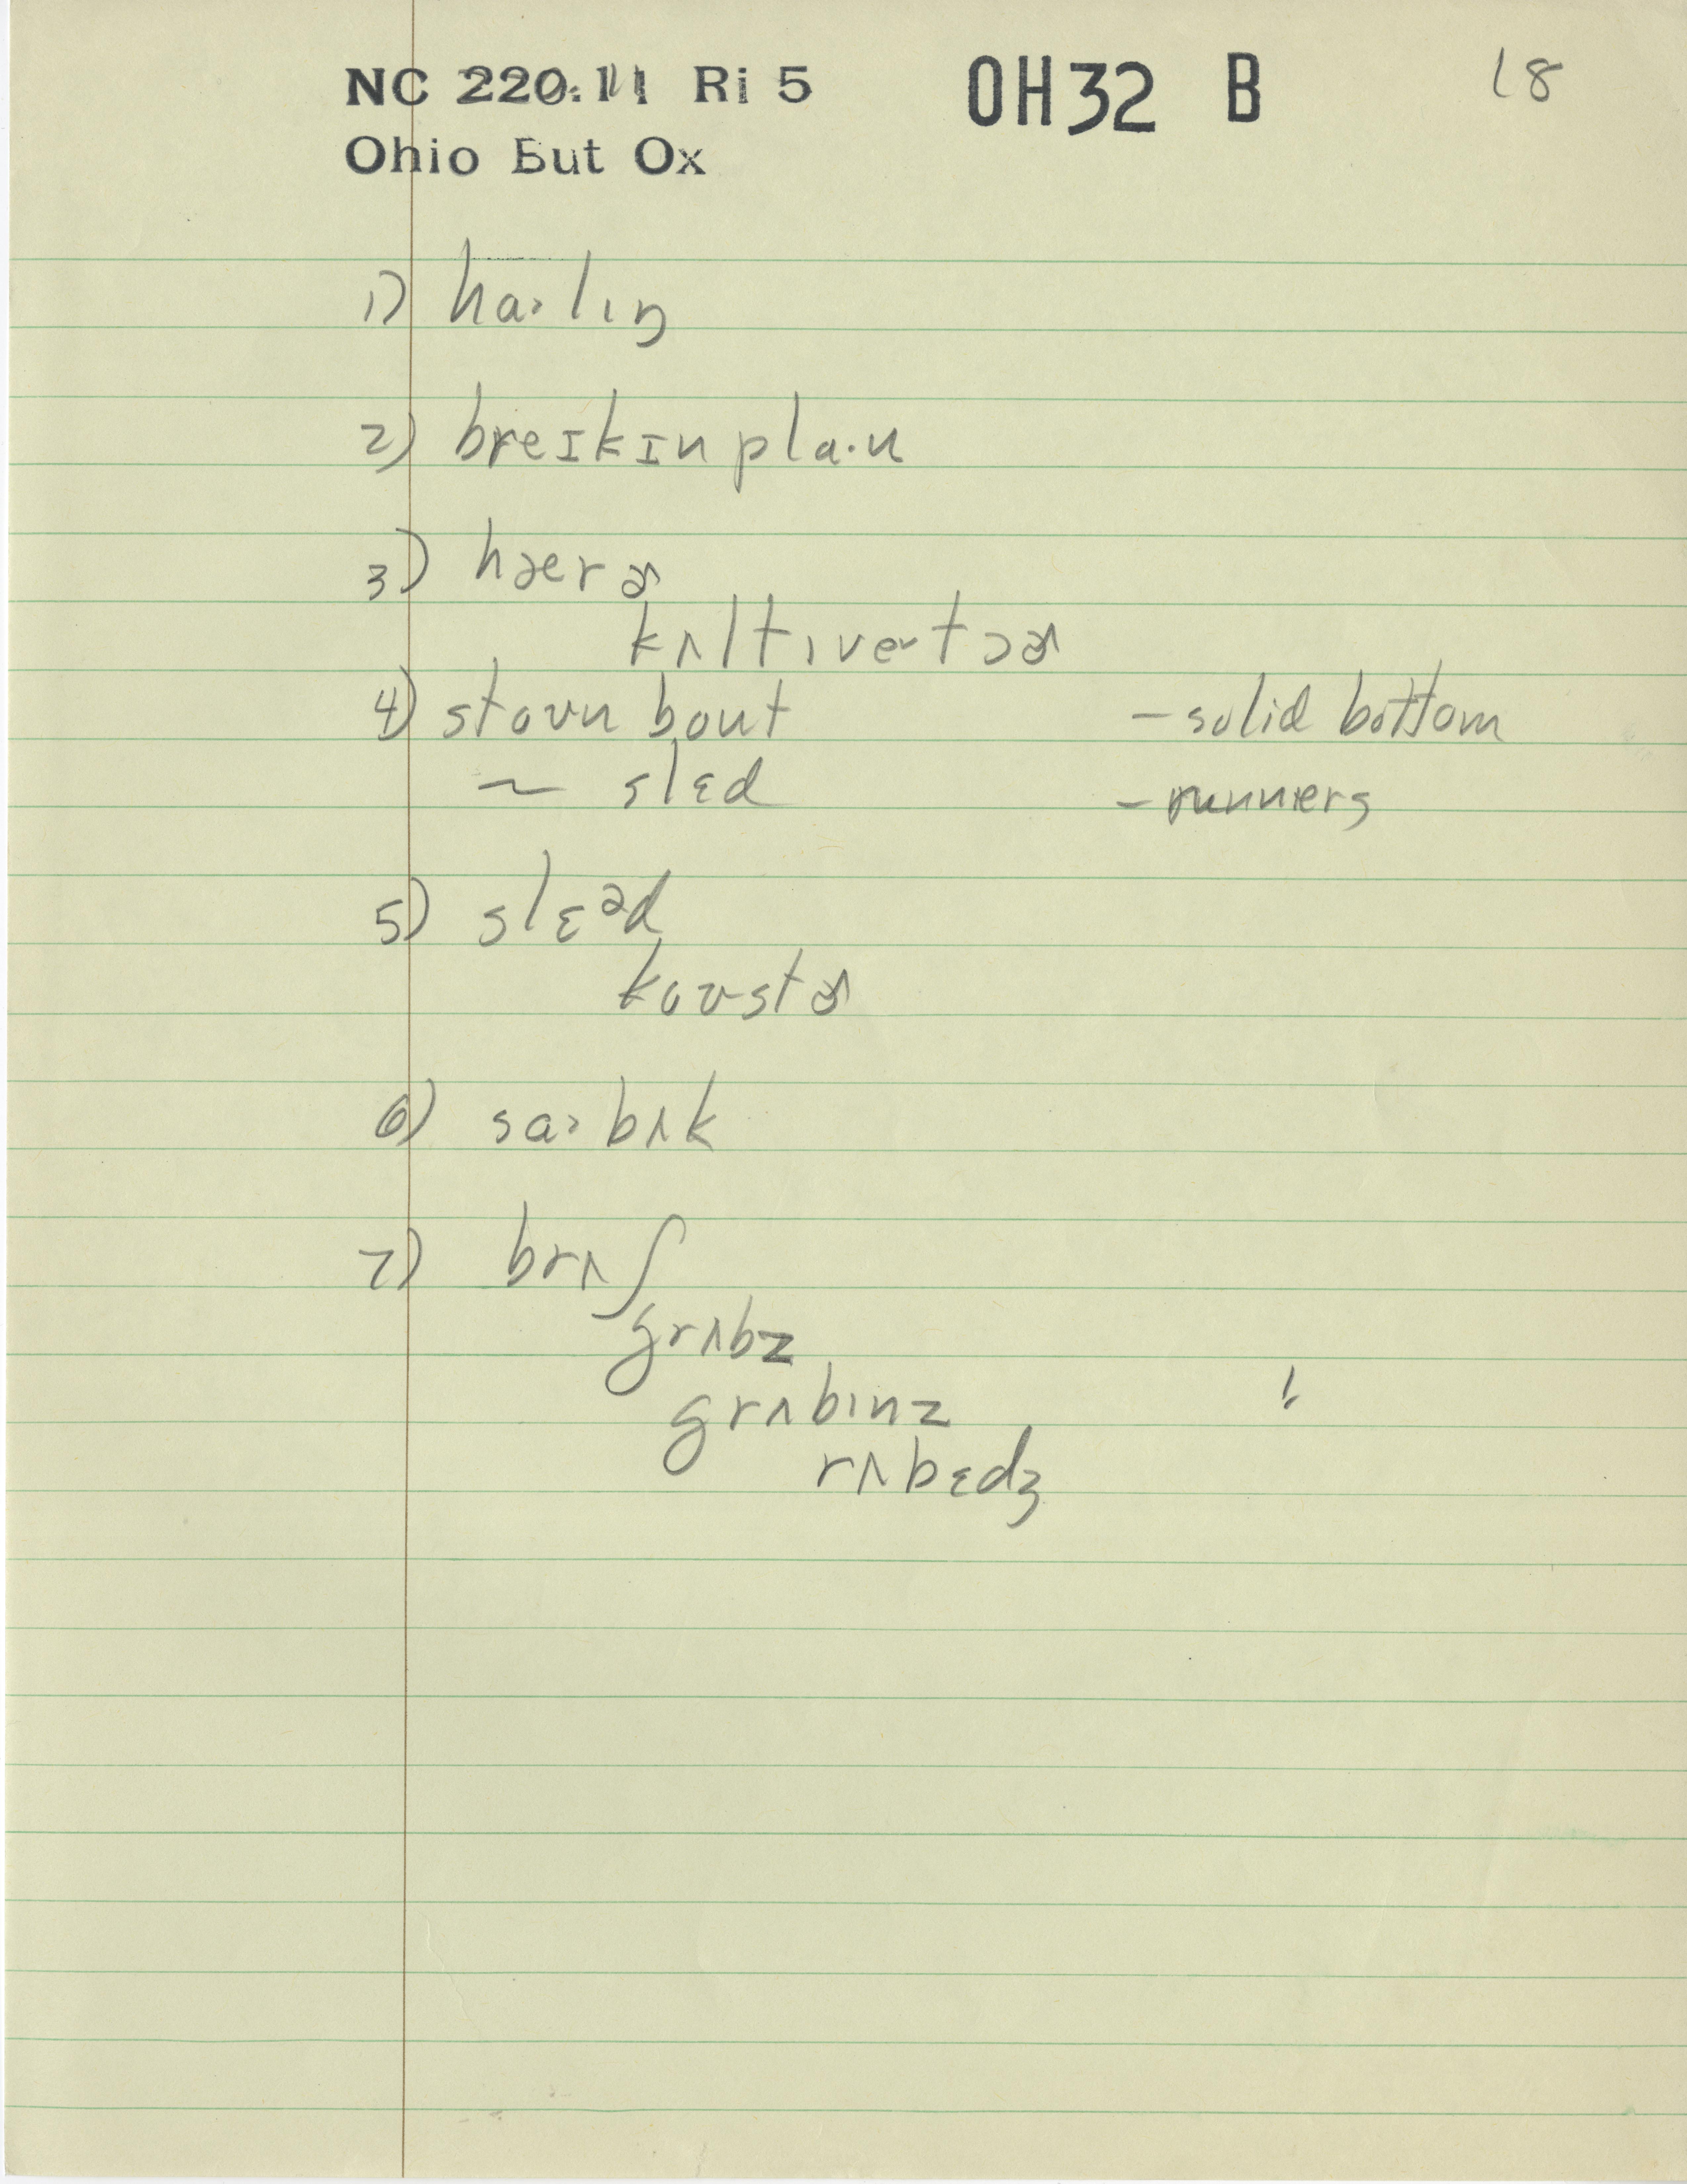 NC 220.11 Ri 5 OH32 B 18
Ohio But Ox
1) ha˒lɪŋ
2) breɪkɪn pla·u
3) hærɚ
kʌltɪveˑtɔɚ
4) stoʊn bout - solid bottom
~ slɛd - runners
5) slɛᵊd
koʊstɚ
6) sa˒bʌk
7) brʌʃ
grʌbz
grʌbɪnz !
rʌbɛdʒ